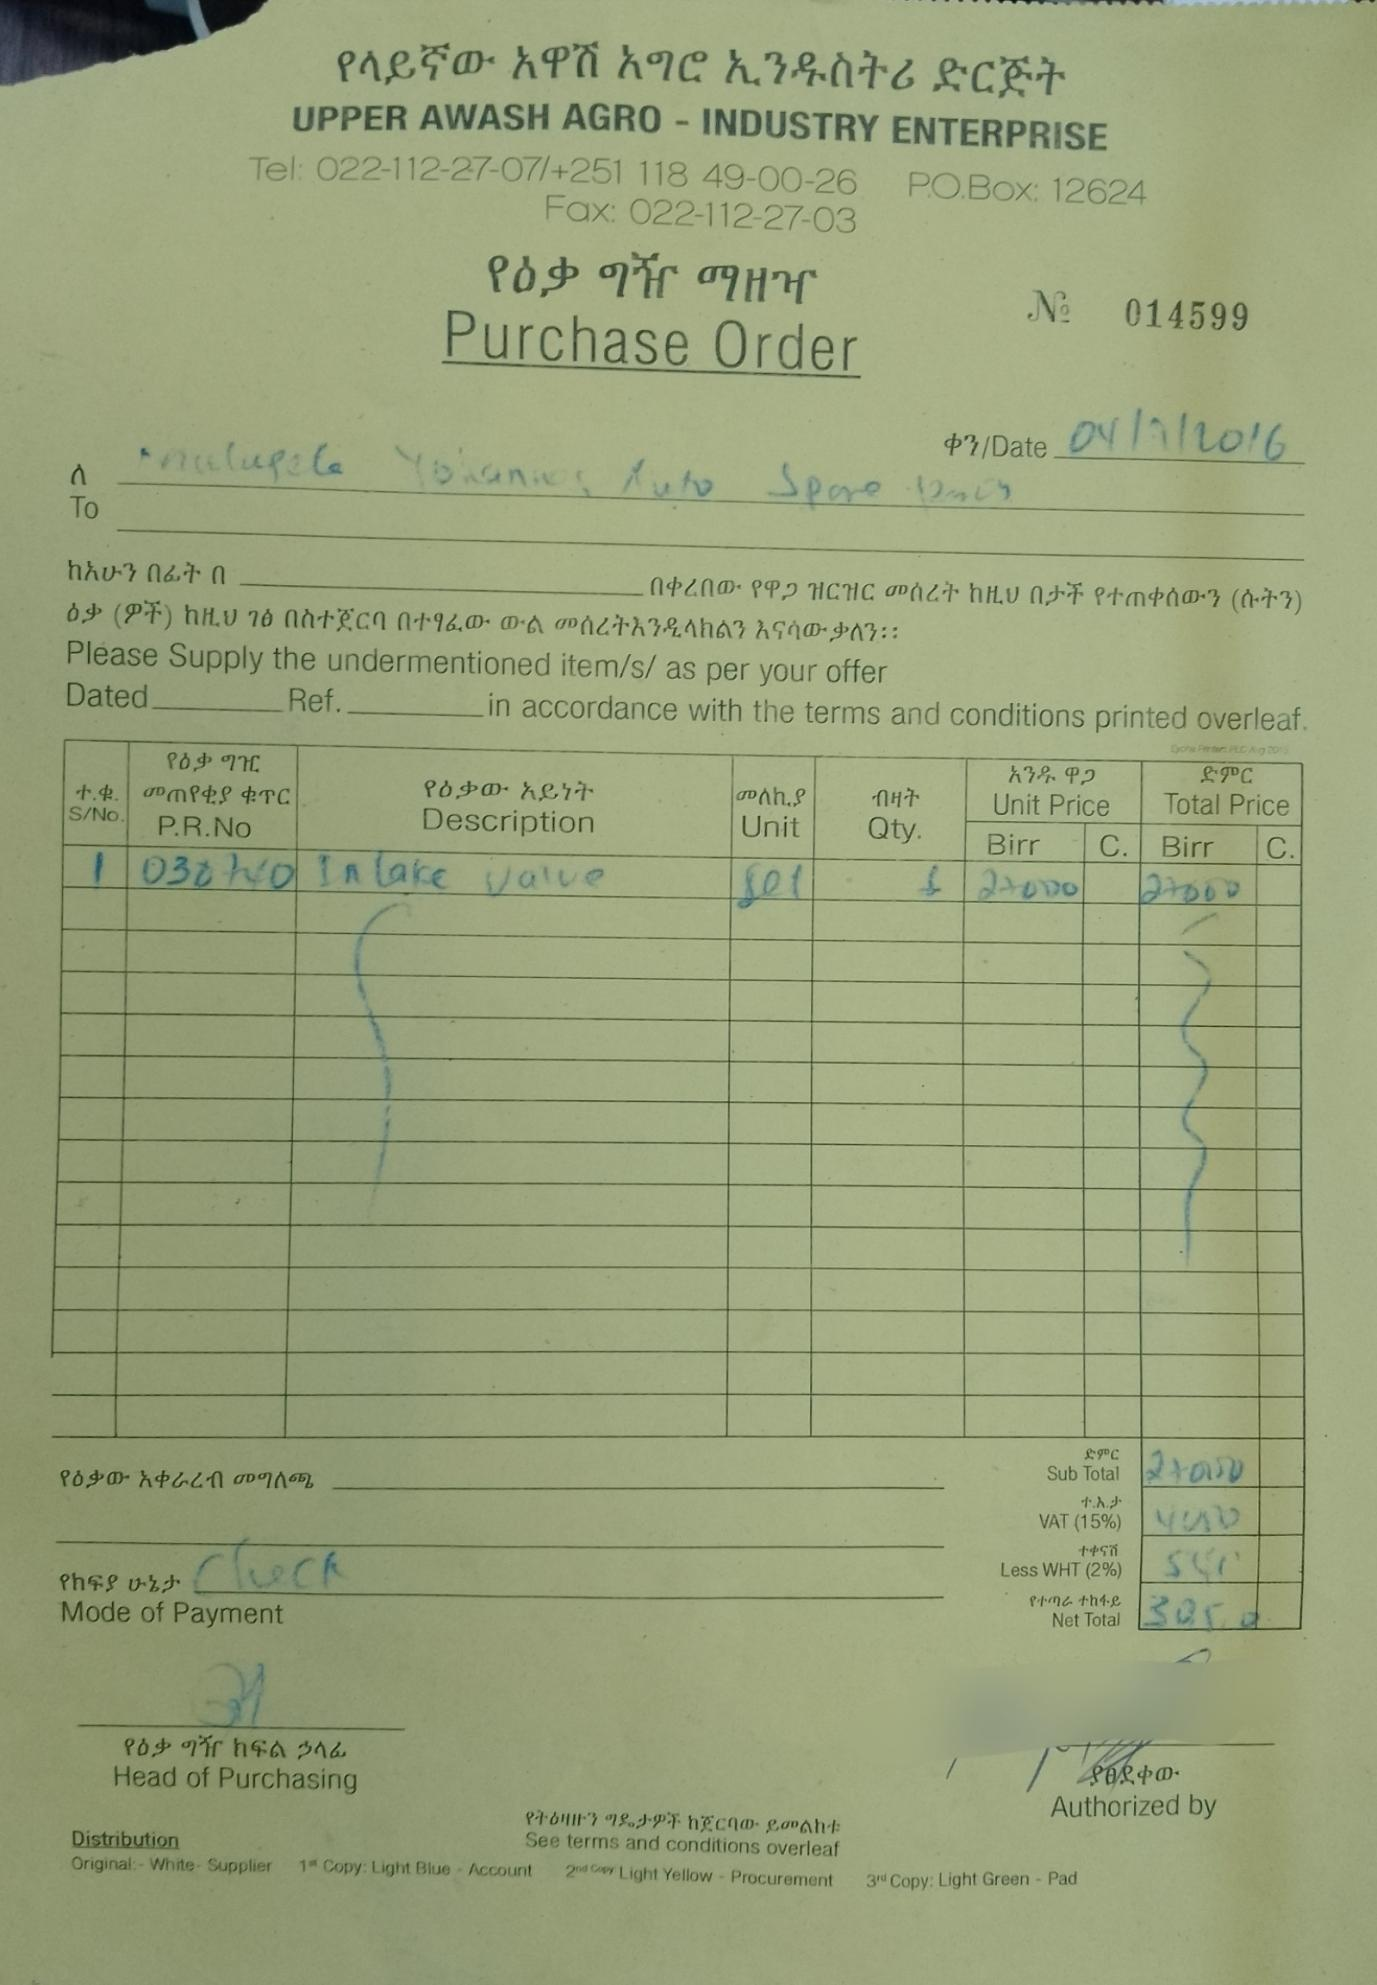 የላይኛው አዋሽ አግሮ ኢንዱስትሪ ድርጅት
UPPER AWASH AGRO - INDUSTRY ENTERPRISE
Tel: 022-112-27-07/+251 118 49-00-26 P.O.Box: 12624
Fax: 022-112-27-03
የዕቃ ግዥ ማዘዣ
Purchase Order
№ 014599
ቀን/Date 04/1/2016
ለ
To
Yohannes Auto Spare Parts
ከአሁን በፊት በ በቀረበው የዋጋ ዝርዝር መሰረት ከዚህ በታች የተጠቀሰውን (ሱትን)
ዕቃ (ዎች) ከዚህ ገፅ በስተጀርባ በተፃፈው ውል መሰረትእንዲላክልን እናሳውቃለን፡፡
Please Supply the undermentioned item/s/ as per your offer
Dated Ref. in accordance with the terms and conditions printed overleaf.
ተ.ቁ. S/No. የዕቃ ግዢ መጠየቂያ ቁጥር P.R.No የዕቃው አይነት Description መለኪያ Unit ብዛት Qty. አንዱ ዋጋ Unit Price Birr C. ድምር Total Price Birr C.
1 Intake valve set 1 27000 27000
የዕቃው አቀራረብ መግለጫ
ድምር
Sub Total 27000
ተ.እ.ታ
VAT (15%) 4050
ተቀናሽ
Less WHT (2%) 540
የተጣራ ተከፋይ
Net Total
የክፍያ ሁኔታ Check
Mode of Payment
የዕቃ ግዥ ክፍል ኃላፊ
Head of Purchasing
ያፀደቀው
Authorized by
የትዕዛዙን ግዴታዎች ከጀርባው ይመልከቱ
See terms and conditions overleaf
Distribution
Original:- White- Supplier 1st Copy: Light Blue - Account 2nd Copy Light Yellow - Procurement 3rd Copy: Light Green - Pad